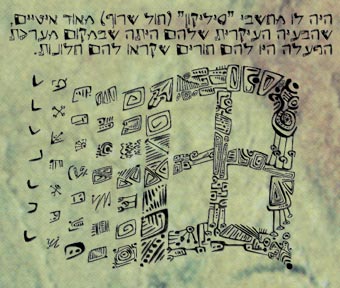 היה לו מחשבי "סיליקון" (חול שרוף) מאוד איטיים,
שהבעיה העיקרית שלהם היתה שבמקום מערכת
הפעלה היו להם חורים שקראו להם חלונות.